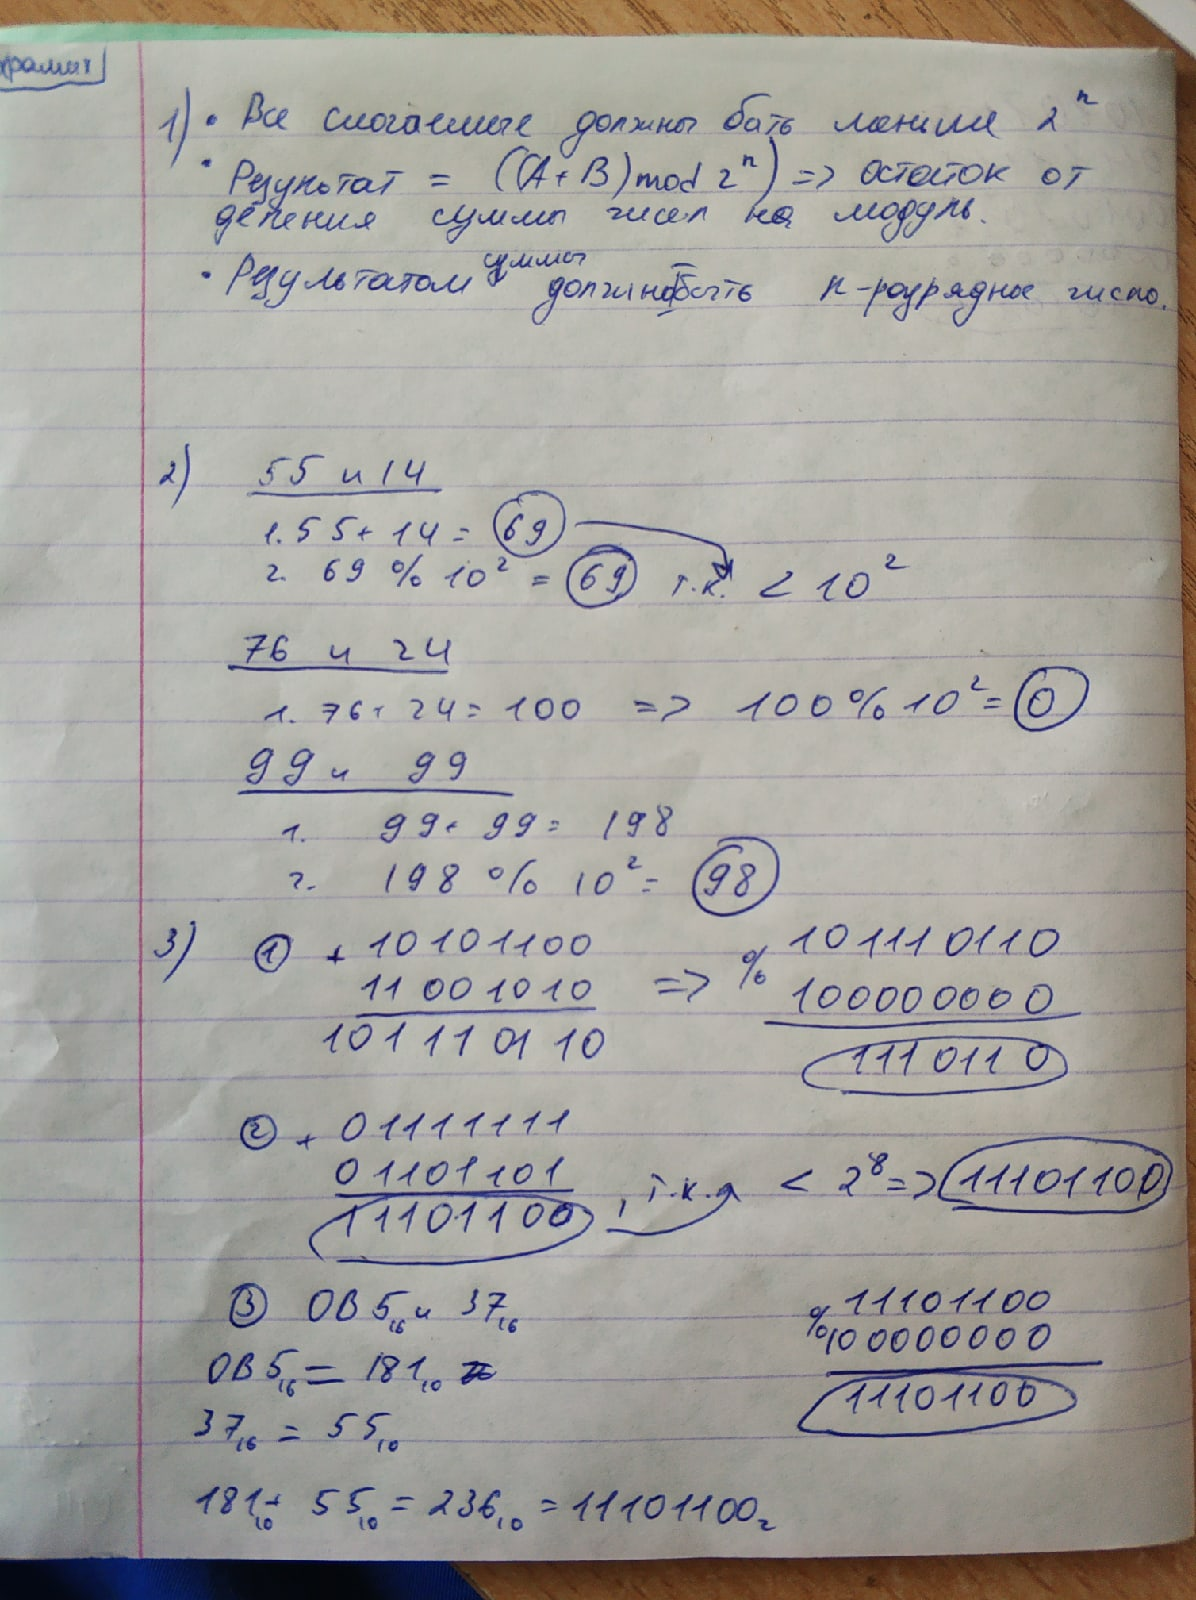 1) • Все слогаемые должны бать меньше 2ⁿ
• Результат = ((A+B) mod 2ⁿ) => остаток от
деления суммы чисел на модуль.
• Результатом суммы должно быть n-розрядное число.
2) 55 и 14
1. 55+ 14 = 69
2. 69 % 10² = 69 т.к. < 10²
76 и 24
1. 76+ 24= 100 => 100 % 10² = 0
99 и 99
1. 99+ 99= 198
2. 198 % 10² = 98
3) ① + 10101100 => % 101110110
11001010 100000000
101110110 1110110
② + 01111111
01101101 , т.к. < 2⁸ => 11101100
11101100
③ 0B5₁₆ и 37₁₆ % 11101100
100000000
0B5₁₆ = 181₁₀ 11101100
37₁₆ = 55₁₀
181₁₀+ 55₁₀ = 236₁₀ = 11101100₂